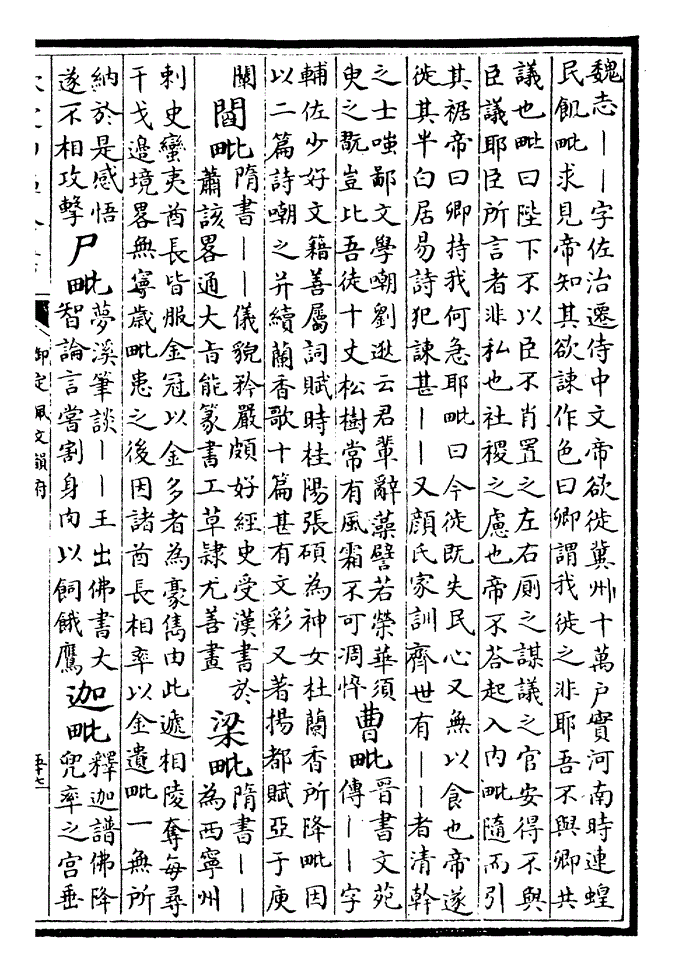 魏志——字佐治遷侍中文帝欲徙冀州十萬戶實河南時連蝗
民飢毗求見帝知其欲諫作色曰卿謂我徙之非耶吾不與卿共
議也毗曰陛下不以臣不肖置之左右厠之謀議之官安得不與
臣議耶臣所言者非私也社稷之慮也帝不荅起入內毗隨而引
其裾帝曰卿持我何急耶毗曰今徙既失民心又無以食也帝遂
徙其半白居易詩犯諫甚——又顔氏家訓齊世有——者清幹
之士嗤鄙文學嘲劉逖云君輩辭藻譬若榮華須
臾之翫豈比吾徒十丈松樹常有風霜不可凋悴
曹毗
晉書文苑
傳——字
輔佐少好文籍善屬詞賦時桂陽張碩為神女杜蘭香所降毗因
以二篇詩嘲之并續蘭香歌十篇甚有文彩又著揚都賦亞于庾
闡
閻毗
隋書——儀貌矜嚴頗好經史受漢書於
蕭該畧通大旨能篆書工草隸尤善畫
梁毗
隋書——
為西寧州
刺史蠻夷酋長皆服金冠以金多者為豪雋由此遞相陵奪每尋
干戈邊境畧無寧歲毗患之後因諸酋長相率以金遺毗一無所
納於是感悟
遂不相攻擊
尸毗
夢溪筆談——王出佛書大
智論言嘗割身肉以飼餓鷹
迦毗
釋迦譜佛降
兜率之宮垂
御定佩文韻府